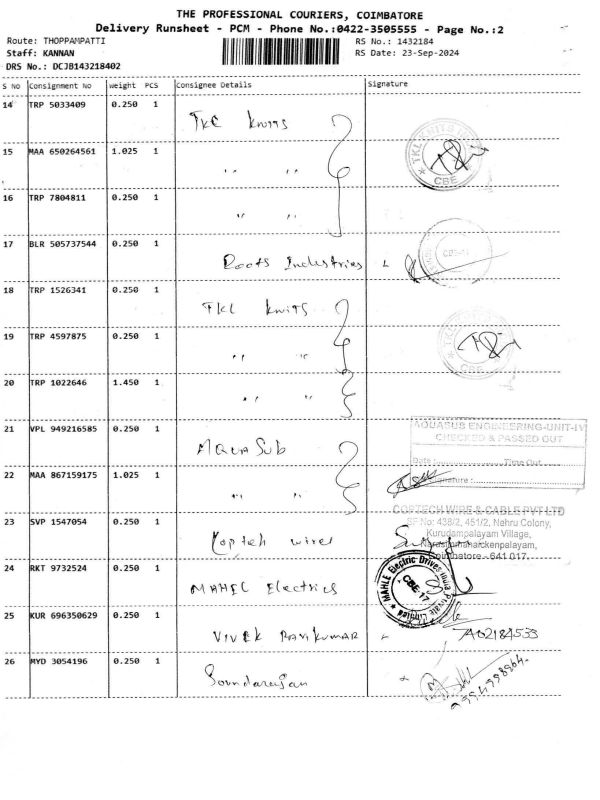 THE PROFESSIONAL COURIERS, COIMBATORE
Delivery Runsheet - PCM - Phone No.:0422-3505555 - Page No.:2
Route: THOPPAMPATTI RS No.: 1432184
Staff: KANNAN RS Date: 23-Sep-2024
DRS No.: DCJB143218402
S No Consignment No weight PCS Consignee Details Signature
14 TRP 5033409 0.250 1
TKL knits
15 MAA 650264561 1.025 1
TKL KNITS
CBE
" "
16 TRP 7804811 0.250 1
" "
17 BLR 505737544 0.250 1
Roots Industries
18 TRP 1526341 0.250 1
TKL knits
19 TRP 4597875 0.250 1
TKL KNITS
CBE
" "
20 TRP 1022646 1.450 1
" "
21 VPL 949216585 0.250 1
AQUASUB ENGINEERING-UNIT-IV
CHECKED & PASSED OUT
Aqua Sub
Date : Time Out
22 MAA 867159175 1.025 1
Signature :
" "
COPTECH WIRE & CABLE PVT LTD
23 SVP 1547054 0.250 1
SF No: 438/2, 451/2, Nehru Colony,
Kurudampalayam Village,
Koptech wires
Narasimhanaickenpalayam,
Coimbatore - 641 017.
24 RKT 9732524 0.250 1
MAHLE Electric Drives India Private Limited
CBE-17
MAHEL Electrics
25 KUR 696350629 0.250 1
VIVEK RAVIKUMAR
26 MYD 3054196 0.250 1
Soundarajan